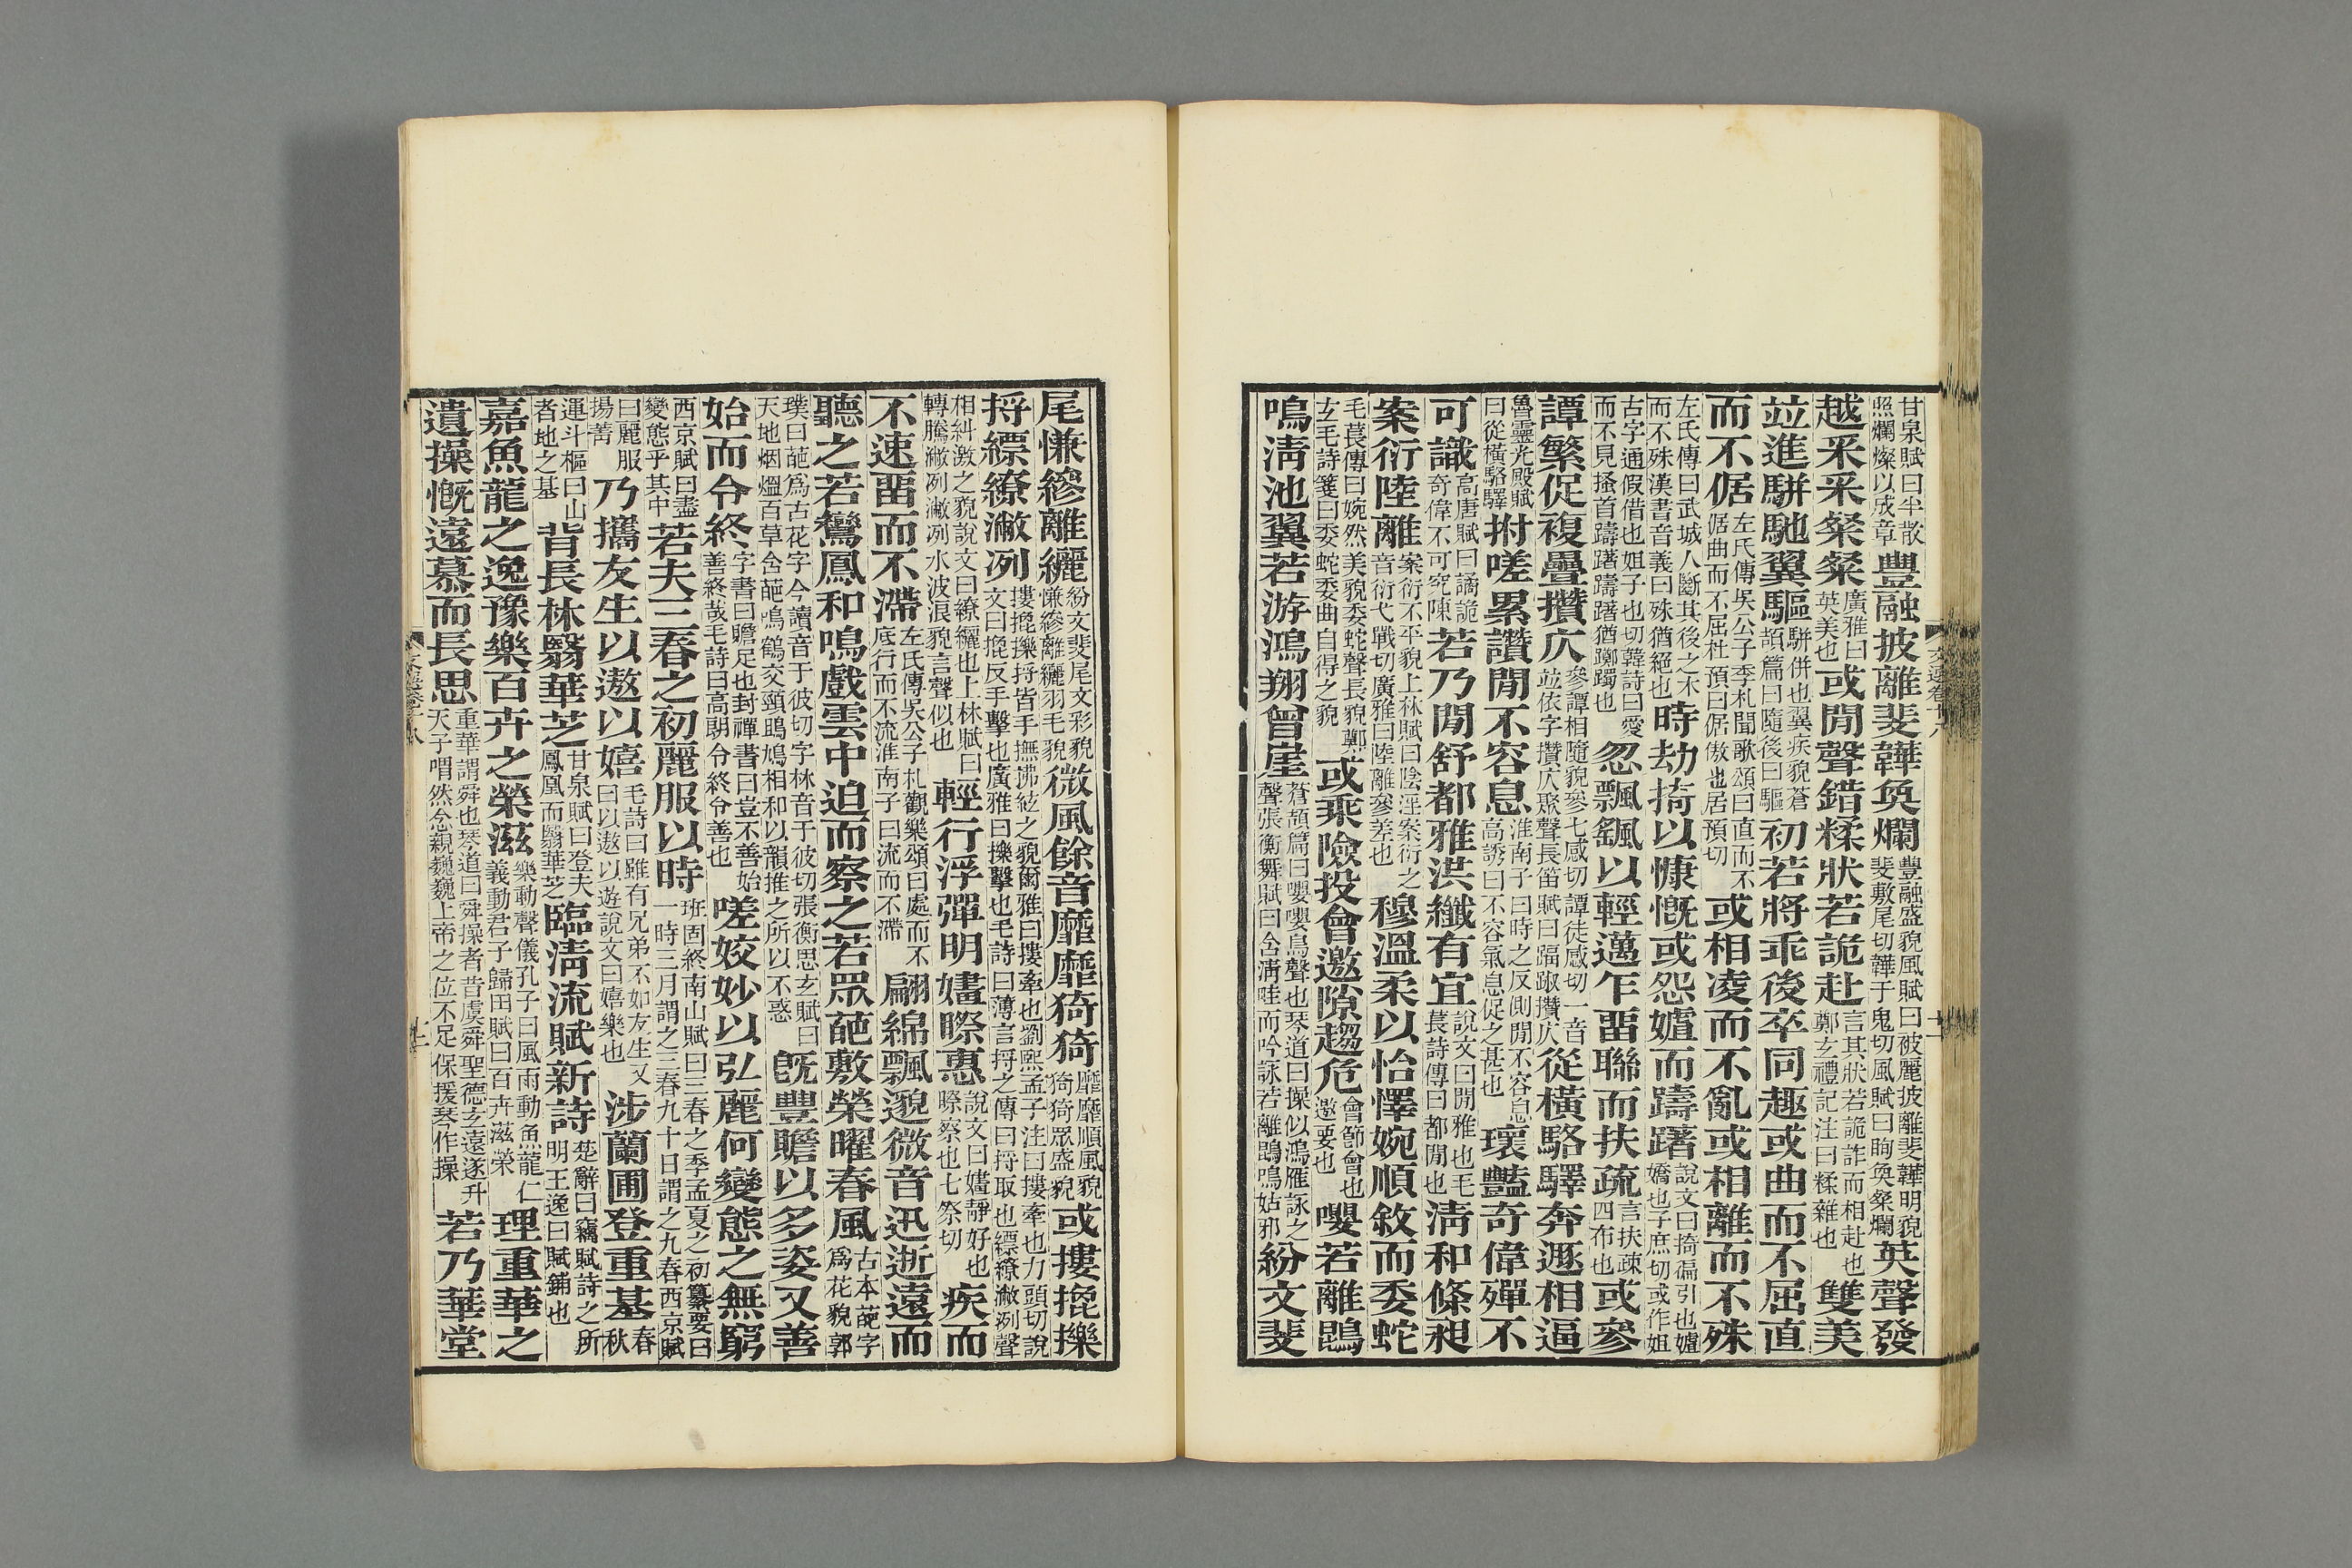 甘泉賦曰半散照爛燦以成章豐融披離斐韡奐爛豐融盛貌風賦曰被麗披離斐韡明貌斐敷尾切韡于鬼切風賦曰眴奐粲爛英聲發
越采采粲粲廣雅曰英美也或閒聲錯糅狀若詭赴言其狀若詭詐而相赴也鄭玄禮記注曰糅雜也雙美
竝進駢馳翼驅駢併也翼疾貌蒼頡篇曰隨後曰驅初若將乖後卒同趣或曲而不屈直
而不倨左氏傳吳公子季札聞歌頌曰直而不倨曲而不屈杜預曰倨傲也居預切或相凌而不亂或相離而不殊
左氏傳曰武城人斷其後之木而不殊漢書音義曰殊猶絕也時劫掎以慷慨或怨㜘而躊躇說文曰掎徧引也㜘嬌也子庶切或作姐
古字通假借也姐子也切韓詩曰愛而不見搔首躊躇躊躇猶躑躅也忽飄颻以輕邁乍畱聯而扶疏言扶疎四布也或參
譚繁促複疊攢仄參譚相隨貌參七感切譚徒感切一音並依字攢仄聚聲長笛賦曰踾踧攢仄從橫駱驛奔遯相逼
魯靈光殿賦曰從橫駱驛拊嗟累讚閒不容息淮南子曰時之反側閒不容息高誘曰不容氣息促之甚也瓌豔奇偉殫不
可識高唐賦曰譎詭奇偉不可究陳若乃閒舒都雅洪纖有宜說文曰閒雅也毛萇詩傳曰都閒也清和條昶
案衍陸離案衍不平貌上林賦曰陰淫案衍之音衍弋戰切廣雅曰陸離參差也穆溫柔以怡懌婉順敘而委蛇
毛萇傳曰婉然美貌委蛇聲長貌鄭玄毛詩箋曰委蛇委曲自得之貌或乘險投會邀隙趨危會節會也邀要也嚶若離鵾
鳴清池翼若游鴻翔曾崖蒼頡篇曰嚶嚶鳥聲也琴道曰操似鴻雁詠之聲張衡舞賦曰含清哇而吟詠若離鵾鳴姑邪紛文斐
尾慊縿離纚紛文斐尾文彩貌慊縿離纚羽毛貌微風餘音靡靡猗猗靡靡順風貌猗猗眾盛貌或摟㧰擽
捋縹繚潎冽摟㧰擽捋皆手撫拂絃之貌爾雅曰摟牽也劉熙孟子注曰摟牽也力頭切說文曰㧰反手擊也廣雅曰擽擊也毛詩曰薄言捋之傳曰捋取也縹繚潎冽聲
相糾激之貌說文曰繚纚也上林賦曰轉騰潎冽潎冽水波浪貌言聲似也輕行浮彈明嫿䁈惠說文曰嫿靜好也䁈察也七祭切疾而
不速畱而不滯左氏傳吳公子札觀樂頌曰處而不底行而不流淮南子曰流而不滯翩綿飄邈微音迅逝遠而
聽之若鸞鳳和鳴戲雲中迫而察之若眾葩敷榮曜春風古本葩字為花貌郭
璞曰葩為古花字今讀音于彼切字林音于彼切張衡思玄賦曰天地烟熅百草含葩鳴鶴交頸鴡鳩相和以韻推之所以不惑旣豐贍以多姿又善
始而令終字書曰贍足也封禪書曰豈不善始善終哉毛詩曰高朗令終令善也嗟姣妙以弘麗何變態之無窮
西京賦曰盡變態乎其中若夫三春之初麗服以時班固終南山賦曰三春之季孟夏之初纂要曰一時三月謂之三春九十日謂之九春西京賦
曰麗服揚菁乃攜友生以遨以嬉毛詩曰雖有兄弟不如友生又曰以遨以遊說文曰嬉樂也涉蘭圃登重基春秋
運斗樞曰山者地之基背長林翳華芝甘泉賦曰登夫鳳凰而翳華芝臨清流賦新詩楚辭曰竊賦詩之所明王逸曰賦鋪也
嘉魚龍之逸豫樂百卉之榮滋樂動聲儀孔子曰風雨動魚龍仁義動君子歸田賦曰百卉滋榮理重華之
遺操慨遠慕而長思重華謂舜也琴道曰舜操者昔虞舜聖德玄遠遂升天子喟然念親巍巍上帝之位不足保援琴作操若乃華堂
文選卷十八
十二